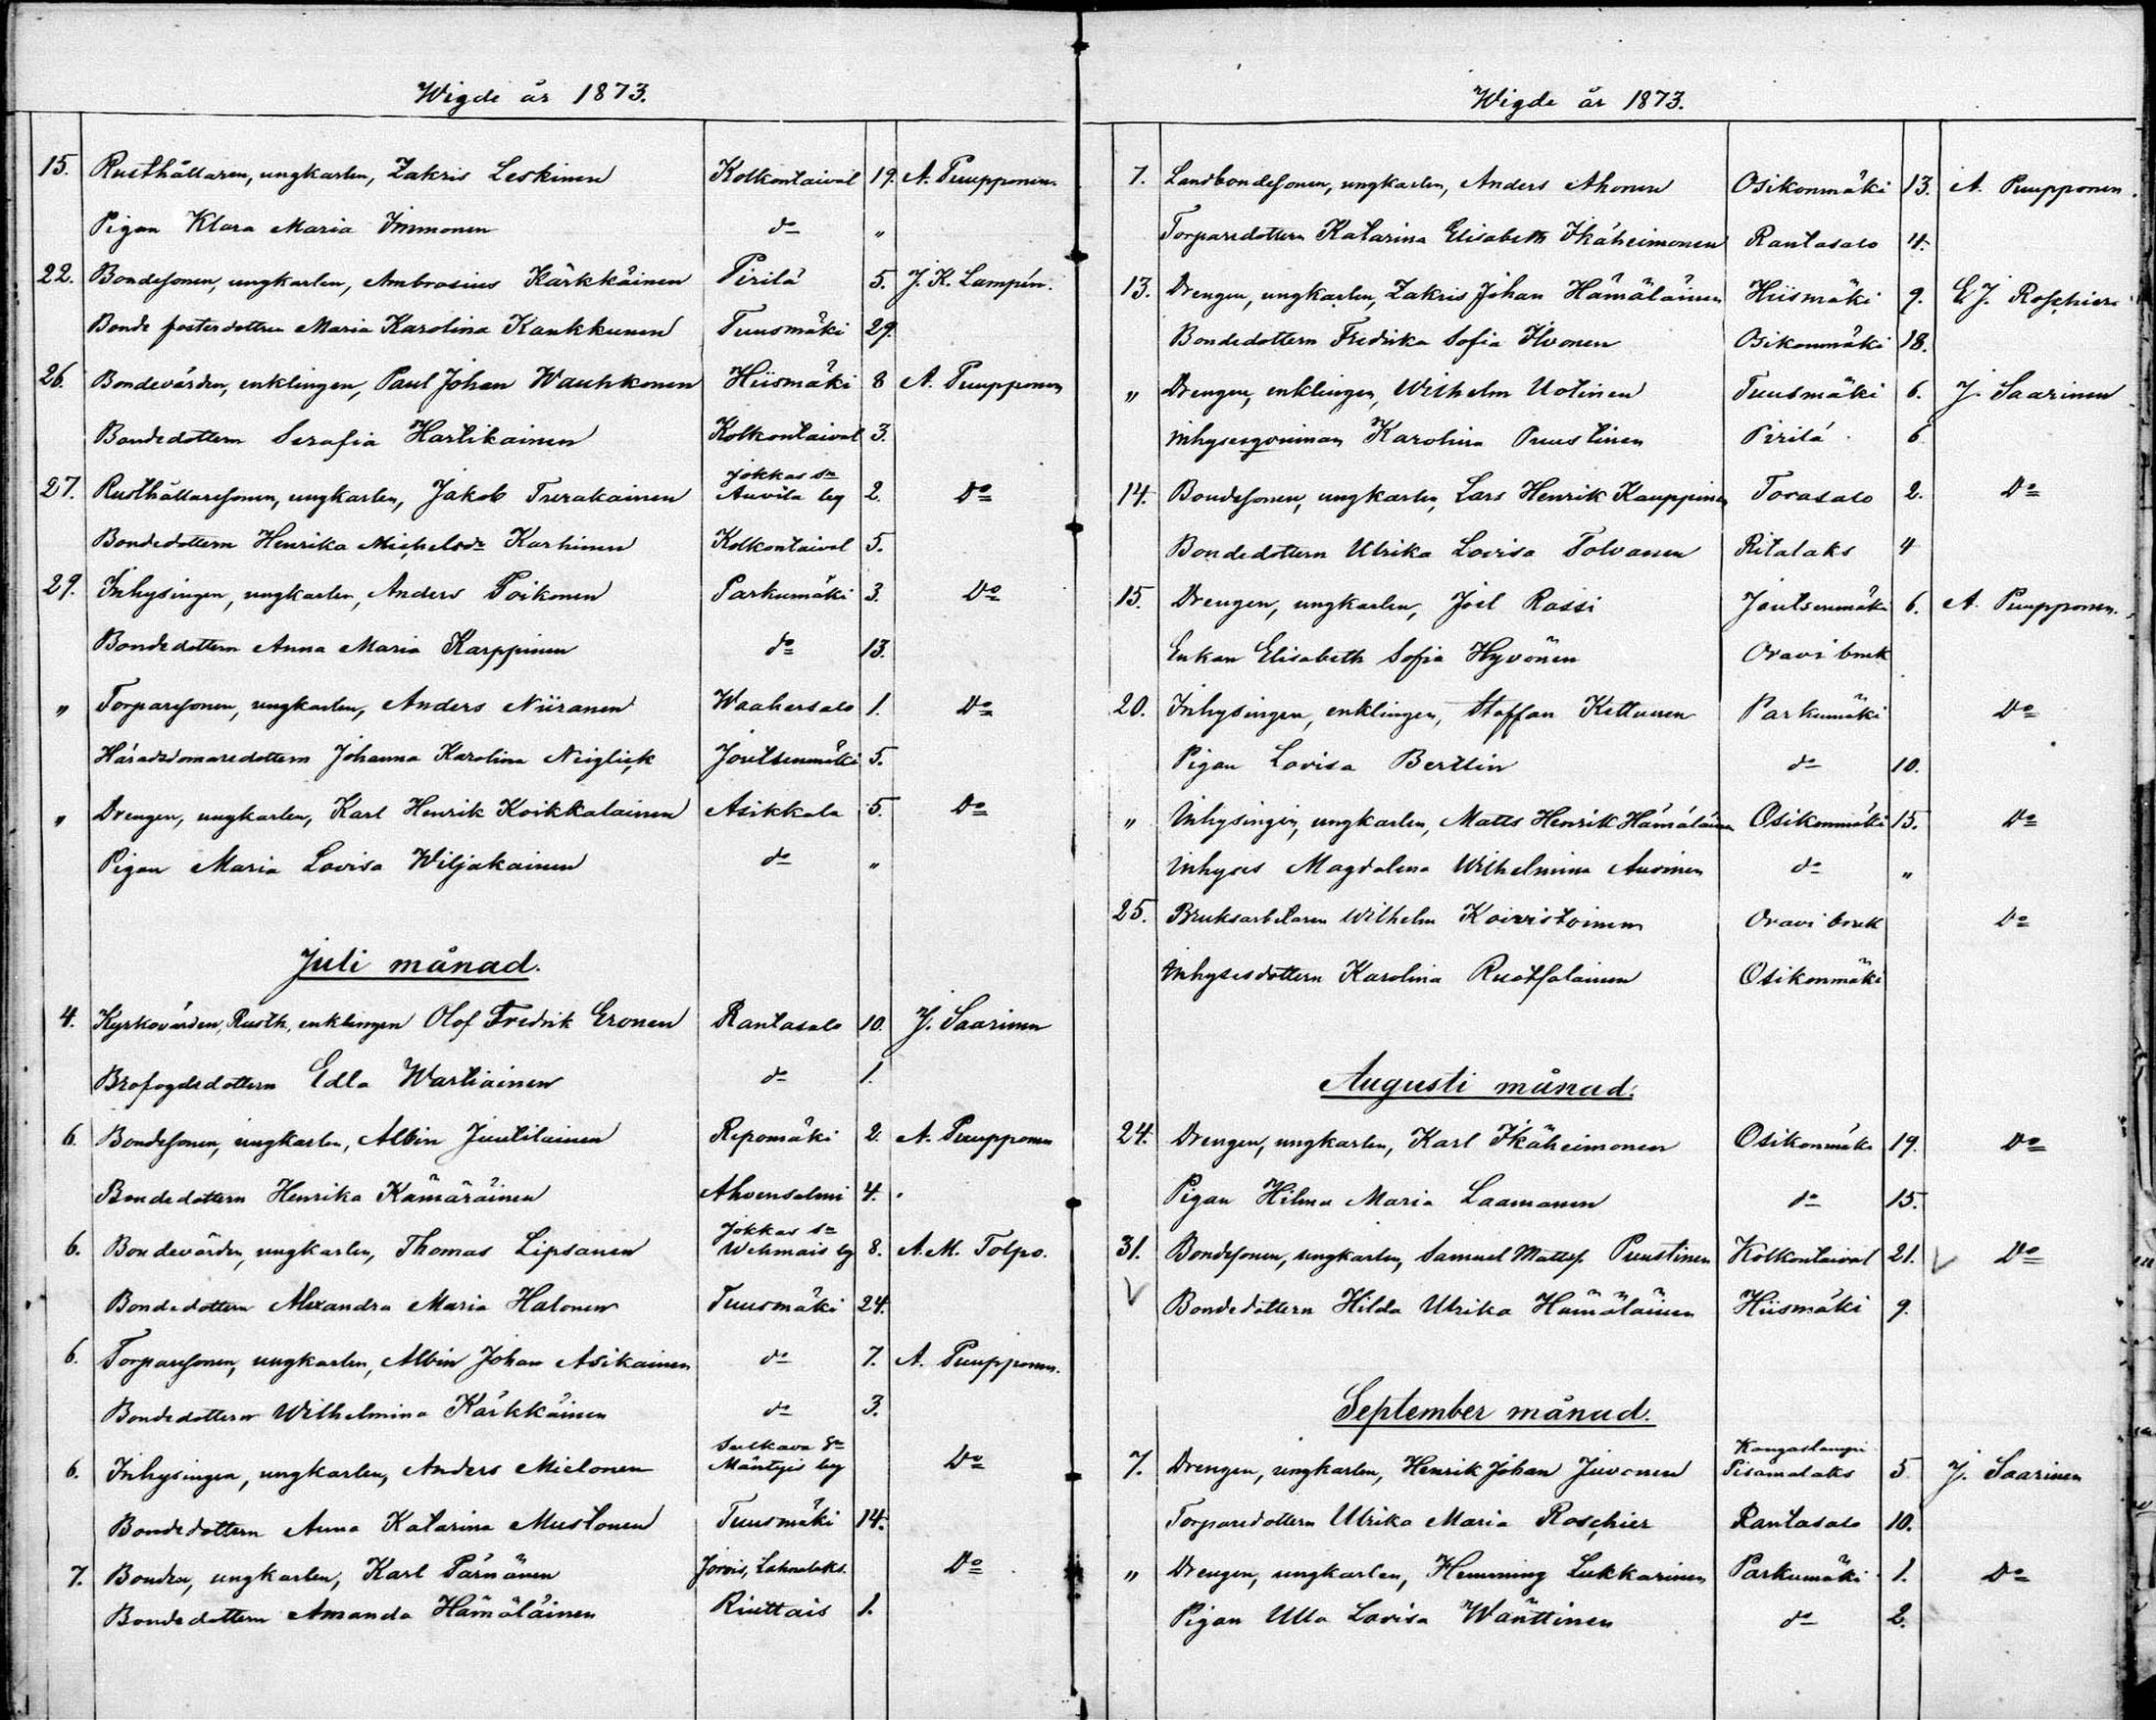 Wigde år 1873.
15. Rusthållaren, ungkarlen, Zakris Leskinen Kolkontaival 19. A. Puupponen.
Pigan Klara Maria Immonen do "
22. Bondesonen, ungkarlen, Ambrosius Kärkkäinen Pirilä 5. J. K. Lampén.
Bonde fosterdottren Maria Karolina Kaukkunen Tuusmäki 29.
26. Bondevärden, enklingen, Paul Johan Wauhkonen Hiismäki 8 A. Puupponen
Bondedottern Serafia Hartikainen Kolkontaival 3.
Jokkas sn
27. Rusthållaresonen, ungkarlen, Jakob Turakainen Auvila by 2. Do
Bondedottern Henrika Michelsdr Karhinen Kolkontaival 5.
29. Inhysingen, ungkarlen, Anders Poikonen Parkumäki 3. Do
Bondedottern Anna Maria Karppinen do 13.
" Torparesonen, ungkarlen, Anders Niiranen Waahersalo 1. Do
Häradsdomaredottern Johanna Karolina Neiglick Joutsenmäki 5.
" Drengen, ungkarlen, Karl Henrik Koikkalainen Asikkala 5. Do
Pigan Maria Lovisa Wiljakainen do "
Juli månad.
4. Kyrkovärden, Rusth, enklingen Olof Fredrik Eronen Rantasalo 10. J. Saarinen
Brofogdedottern Edla Wartiainen do 1.
6. Bondesonen, ungkarlen, Albin Juutilainen Repomäki 2. A. Puupponen
Bondedottern Henrika Kämäräinen Ahvensalmi 4.
Jokkas sn
6. Bondevärden, ungkarlen, Thomas Lipsanen Wehmais by 8. A. M. Tolpo.
Bondedottern Alexandra Maria Halonen Tuusmäki 24.
6. Torparesonen, ungkarlen, Albin Johan Asikainen do 7. A. Puupponen.
Bondedottern Wilhelmina Kärkkäinen do 3.
Sulkava sn
6. Inhysingen, ungkarlen, Anders Mielonen Mäntyis by Do
Bondedottern Anna Katarina Mustonen Tuusmäki 14.
7. Bonden, ungkarlen, Karl Pärnänen Jorois, Lahnalaks. Do
Bondedottern Amanda Hämäläinen Riuttais 1.
Wigde år 1873.
7. Landbondesonen, ungkarlen, Anders Ahonen Osikonmäki 13. A. Puupponen.
Torparedottern Katarina Elisabeth Ikäheimonen Rantasalo 4.
13. Drengen, ungkarlen, Zakris Johan Hämäläinen Hiismäki 9. E. J. Roschier
Bondedottern Fredrika Sofia Ilvonen Osikonmäki 18.
" Drengen, enklingen, Wilhelm Uotinen Tuusmäki 6. J. Saarinen
Inhysesqvinnan Karolina Puustinen Pirilä 6
14. Bondesonen, ungkarlen, Lars Henrik Kauppinen Torasalo 2. Do
Bondedottern Ulrika Lovisa Tolvanen Ritalaks 4
15. Drengen, ungkarlen, Joel Rossi Joutsenmäki 6. A. Puupponen.
Enkan Elisabeth Sofia Hyvönen Oravi bruk
20. Inhysingen, enklingen, Staffan Kettunen Parkumäki Do
Pigan Lovisa Bertlin do 10.
" Inhysingen, ungkarlen, Matts Henrik Hämäläinen Osikonmäki 15. Do
Inhyses Magdalena Wilhelmina Auvinen do "
25. Bruksarbetaren Wilhelm Koivistoinen Oravi bruk Do
Inhysesdottern Karolina Ruotsalainen Osikonmäki
Augusti månad.
24. Drengen, ungkarlen, Karl Ikäheimonen Osikonmäki 19. Do
Pigan Hilma Maria Laamanen do 15.
31. Bondesonen, ungkarlen, Samuel Mattss. Puustinen Kolkontaival 21. Do
Bondedottern Hilda Ulrika Hämäläinen Hiismäki 9.
September månad.
Kangaslampi
7. Drengen, ungkarlen, Henrik Johan Juvonen Pisamalaks 5 J. Saarinen
Torparedottern Ulrika Maria Roschier Rantasalo 10.
" Drengen, ungkarlen, Hemming Lukkarinen Parkumäki 1. Do
Pigan Ulla Lovisa Wänttinen do 2.